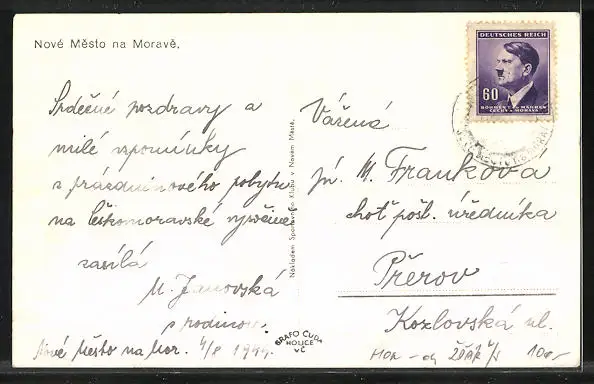 Nové Město na Moravě.
Srdečné pozdravy a
milé vzpomínky
z prázdninového pobytu
na českomoravské vysočině
zasílá
M. Janovská
s rodinou.
Nové Město na Mor. 4/8 1944.
Nákladem Sportovního Klubu v Novém Městě.
GRAFO ČUDA
HOLICE
V Č
DEUTSCHES REICH
60
BÖHMEN U. MÄHREN
ČECHY A MORAVA
Vážená
pí. M. Franková
choť pošt. úředníka
Přerov
Kozlovská ul.
MOR - ŽĎÁR 100-